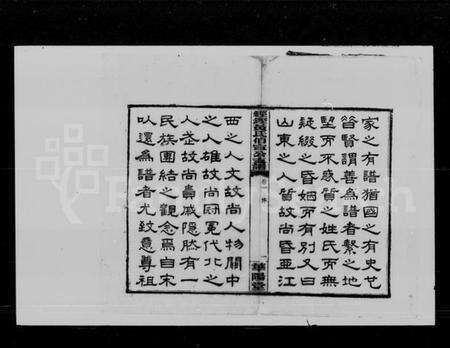 家之有譜猶國之有史也
昝賢謂善為譜者繫之地
望而不惑質之姓氏而無
疑綴之昏姻而有別又曰
山東之人質故尚昏亚江
華陽堂
西之人文故尚人物關中
之人雄故尚冠冕代北之
人武故尚貴戚隱然有一
民族團結之觀念焉自宋
以還為譜者尤致意尊祖